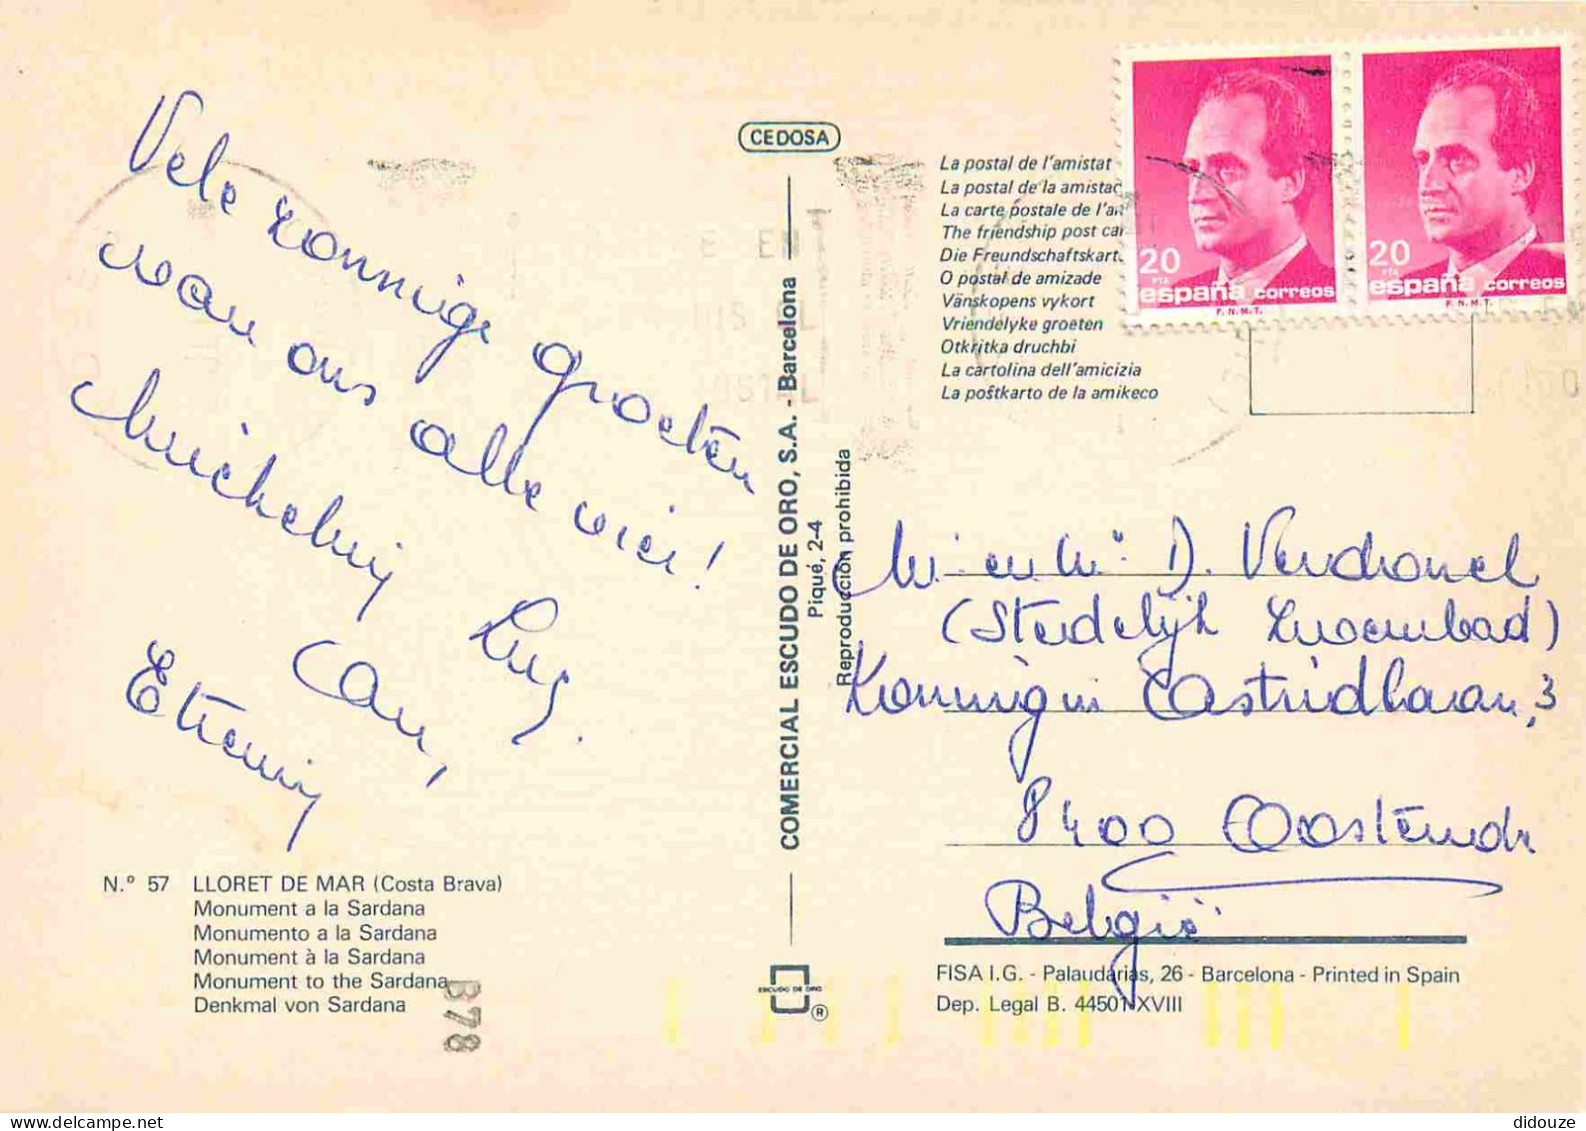 Vele zonnige groeten
van ons alle vier!
Luc,
Etienne
N.º 57 LLORET DE MAR (Costa Brava)
Monument a la Sardana
Monumento a la Sardana
Monument à la Sardana
Monument to the Sardana
Denkmal von Sardana
B78
CEDOSA
COMERCIAL ESCUDO DE ORO, S.A. - Barcelona
Piqué, 2-4
Reproducción prohibida
ESCUDO DE ORO
®
La postal de l'amistat
La postal de la amistad
La carte postale de l'am
The friendship post car
Die Freundschaftskarte
O postal de amizade
Vänskopens vykort
Vriendelyke groeten
Otkritka druchbi
La cartolina dell'amicizia
La poŝtkarto de la amikeco
20 PTA
españa correos
F.N.M.T.
20 PTA
españa correos
F.N.M.T.
Mr en Mw D. Verdonck
(Stedelijk Zwembad)
Koningin Astridlaan, 3
8400 Oostende
België
FISA I.G. - Palaudarias, 26 - Barcelona - Printed in Spain
Dep. Legal B. 44501-XVIII
didouze